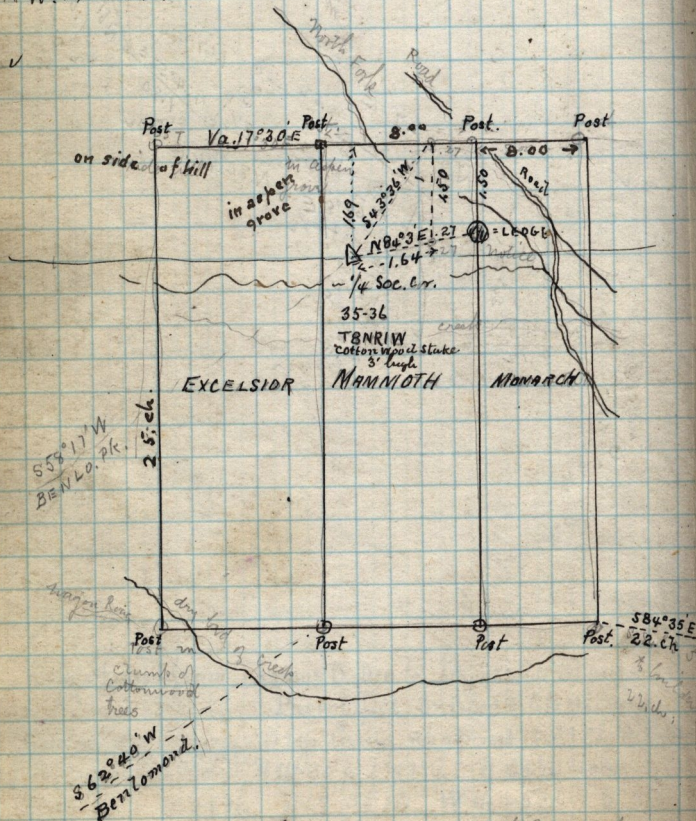 North
Fork
Road
Post
Post
Post.
Post
Va. 17°30'E
8.00
8.00
on side of hill
in aspen
grove
in aspen
grove
1.69
S43°36'W
1.50
1.50
Road
N84°3'E
1.27
.27
= LEDGE
Notice
1.64
1/4 Sec. Cr.
35-36
T8NR1W
Cotton Wood Stake
3' high
creek
EXCELSIOR
MAMMOTH
MONARCH
25. ch.
S58°17'W
BENLO. PK.
Wagon Road
dry bed of creek
Post
Post
Post
Post.
S84°35'E
22. ch
Post in
clump of
Cottonwood
trees
22. ch.
S62°40'W
Benlomond.